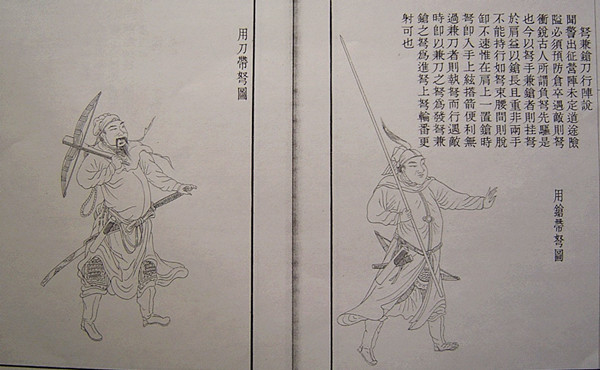 弩兼鎗刀行陣說
聞警出征營陣未定道途險
隘必須預防倉卒遇敵則弩
衝銳古人所謂負弩先驅是
也今以弩手兼鎗者則挂弩
於肩益以鎗長且重非兩手
不能持行如弩束腰間則脫
卸不速惟在肩上一置鎗時
弩即入手上絃搭箭便利無
過兼刀者則執弩而行遇敵
時即以兼刀之弩為發弩兼
鎗之弩為進弩上弩輪番更
射可也
用鎗帶弩圖
用刀帶弩圖